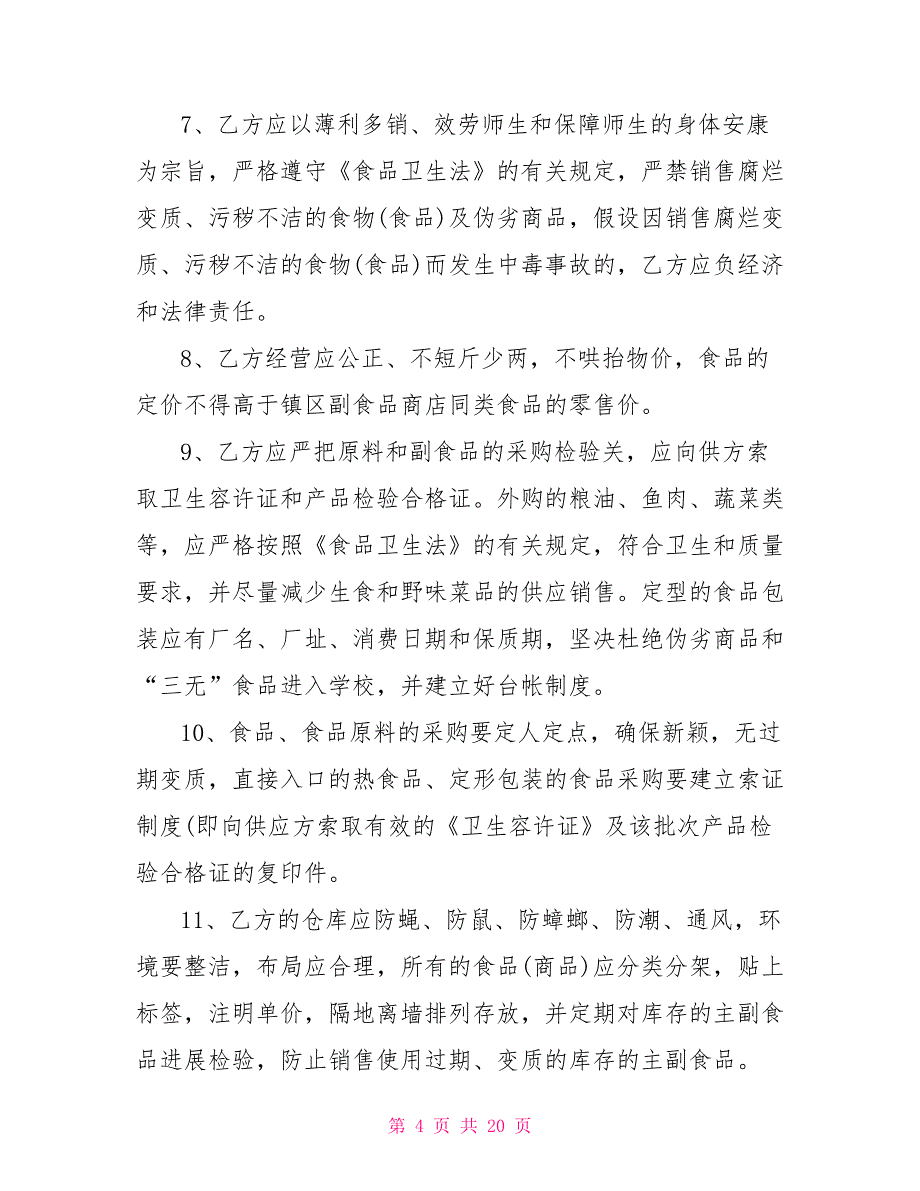 7、乙方应以薄利多销、效劳师生和保障师生的身体安康
为宗旨，严格遵守《食品卫生法》的有关规定，严禁销售腐烂
变质、污秽不洁的食物(食品)及伪劣商品，假设因销售腐烂变
质、污秽不洁的食物(食品)而发生中毒事故的，乙方应负经济
和法律责任。
8、乙方经营应公正、不短斤少两，不哄抬物价，食品的
定价不得高于镇区副食品商店同类食品的零售价。
9、乙方应严把原料和副食品的采购检验关，应向供方索
取卫生容许证和产品检验合格证。外购的粮油、鱼肉、蔬菜类
等，应严格按照《食品卫生法》的有关规定，符合卫生和质量
要求，并尽量减少生食和野味菜品的供应销售。定型的食品包
装应有厂名、厂址、消费日期和保质期，坚决杜绝伪劣商品和
“三无”食品进入学校，并建立好台帐制度。
10、食品、食品原料的采购要定人定点，确保新颖，无过
期变质，直接入口的热食品、定形包装的食品采购要建立索证
制度(即向供应方索取有效的《卫生容许证》及该批次产品检
验合格证的复印件。
11、乙方的仓库应防蝇、防鼠、防蟑螂、防潮、通风，环
境要整洁，布局应合理，所有的食品(商品)应分类分架，贴上
标签，注明单价，隔地离墙排列存放，并定期对库存的主副食
品进展检验，防止销售使用过期、变质的库存的主副食品。
第 4 页 共 20 页